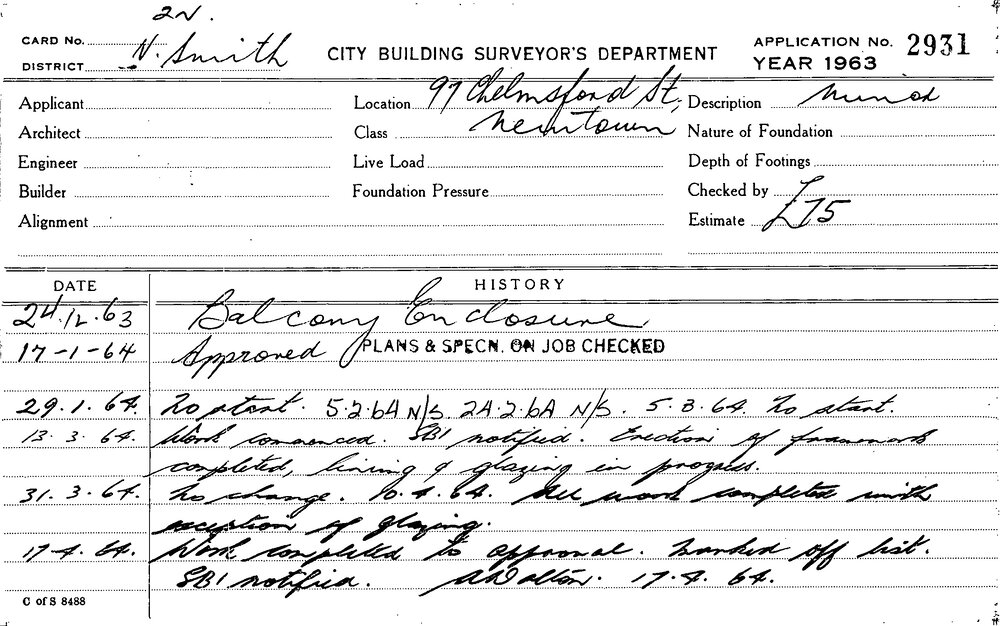 2N.
CARD No.
DISTRICT N. Smith
CITY BUILDING SURVEYOR'S DEPARTMENT
APPLICATION No. 2931
YEAR 1963
Applicant
Location 97 Chelmsford St,
Description Minor
Architect
Class Newtown
Nature of Foundation
Engineer
Live Load
Depth of Footings
Builder
Foundation Pressure
Checked by
Alignment
Estimate £75
DATE HISTORY
24.12.63 Balcony Enclosure
17-1-64 Approved PLANS & SPECN. ON JOB CHECKED
29.1.64. No start. 5.2.64 N/S 24.2.64 N/S. 5.3.64. No start.
13.3.64. Work commenced. SB1 notified. Erection of framework
completed, lining & glazing in progress.
31.3.64. No change. 10.4.64. All work completed with
exception of glazing.
17.4.64. Work completed to approval. Marked off list.
SB1 notified. AWalton. 17.4.64.
C of S 8488